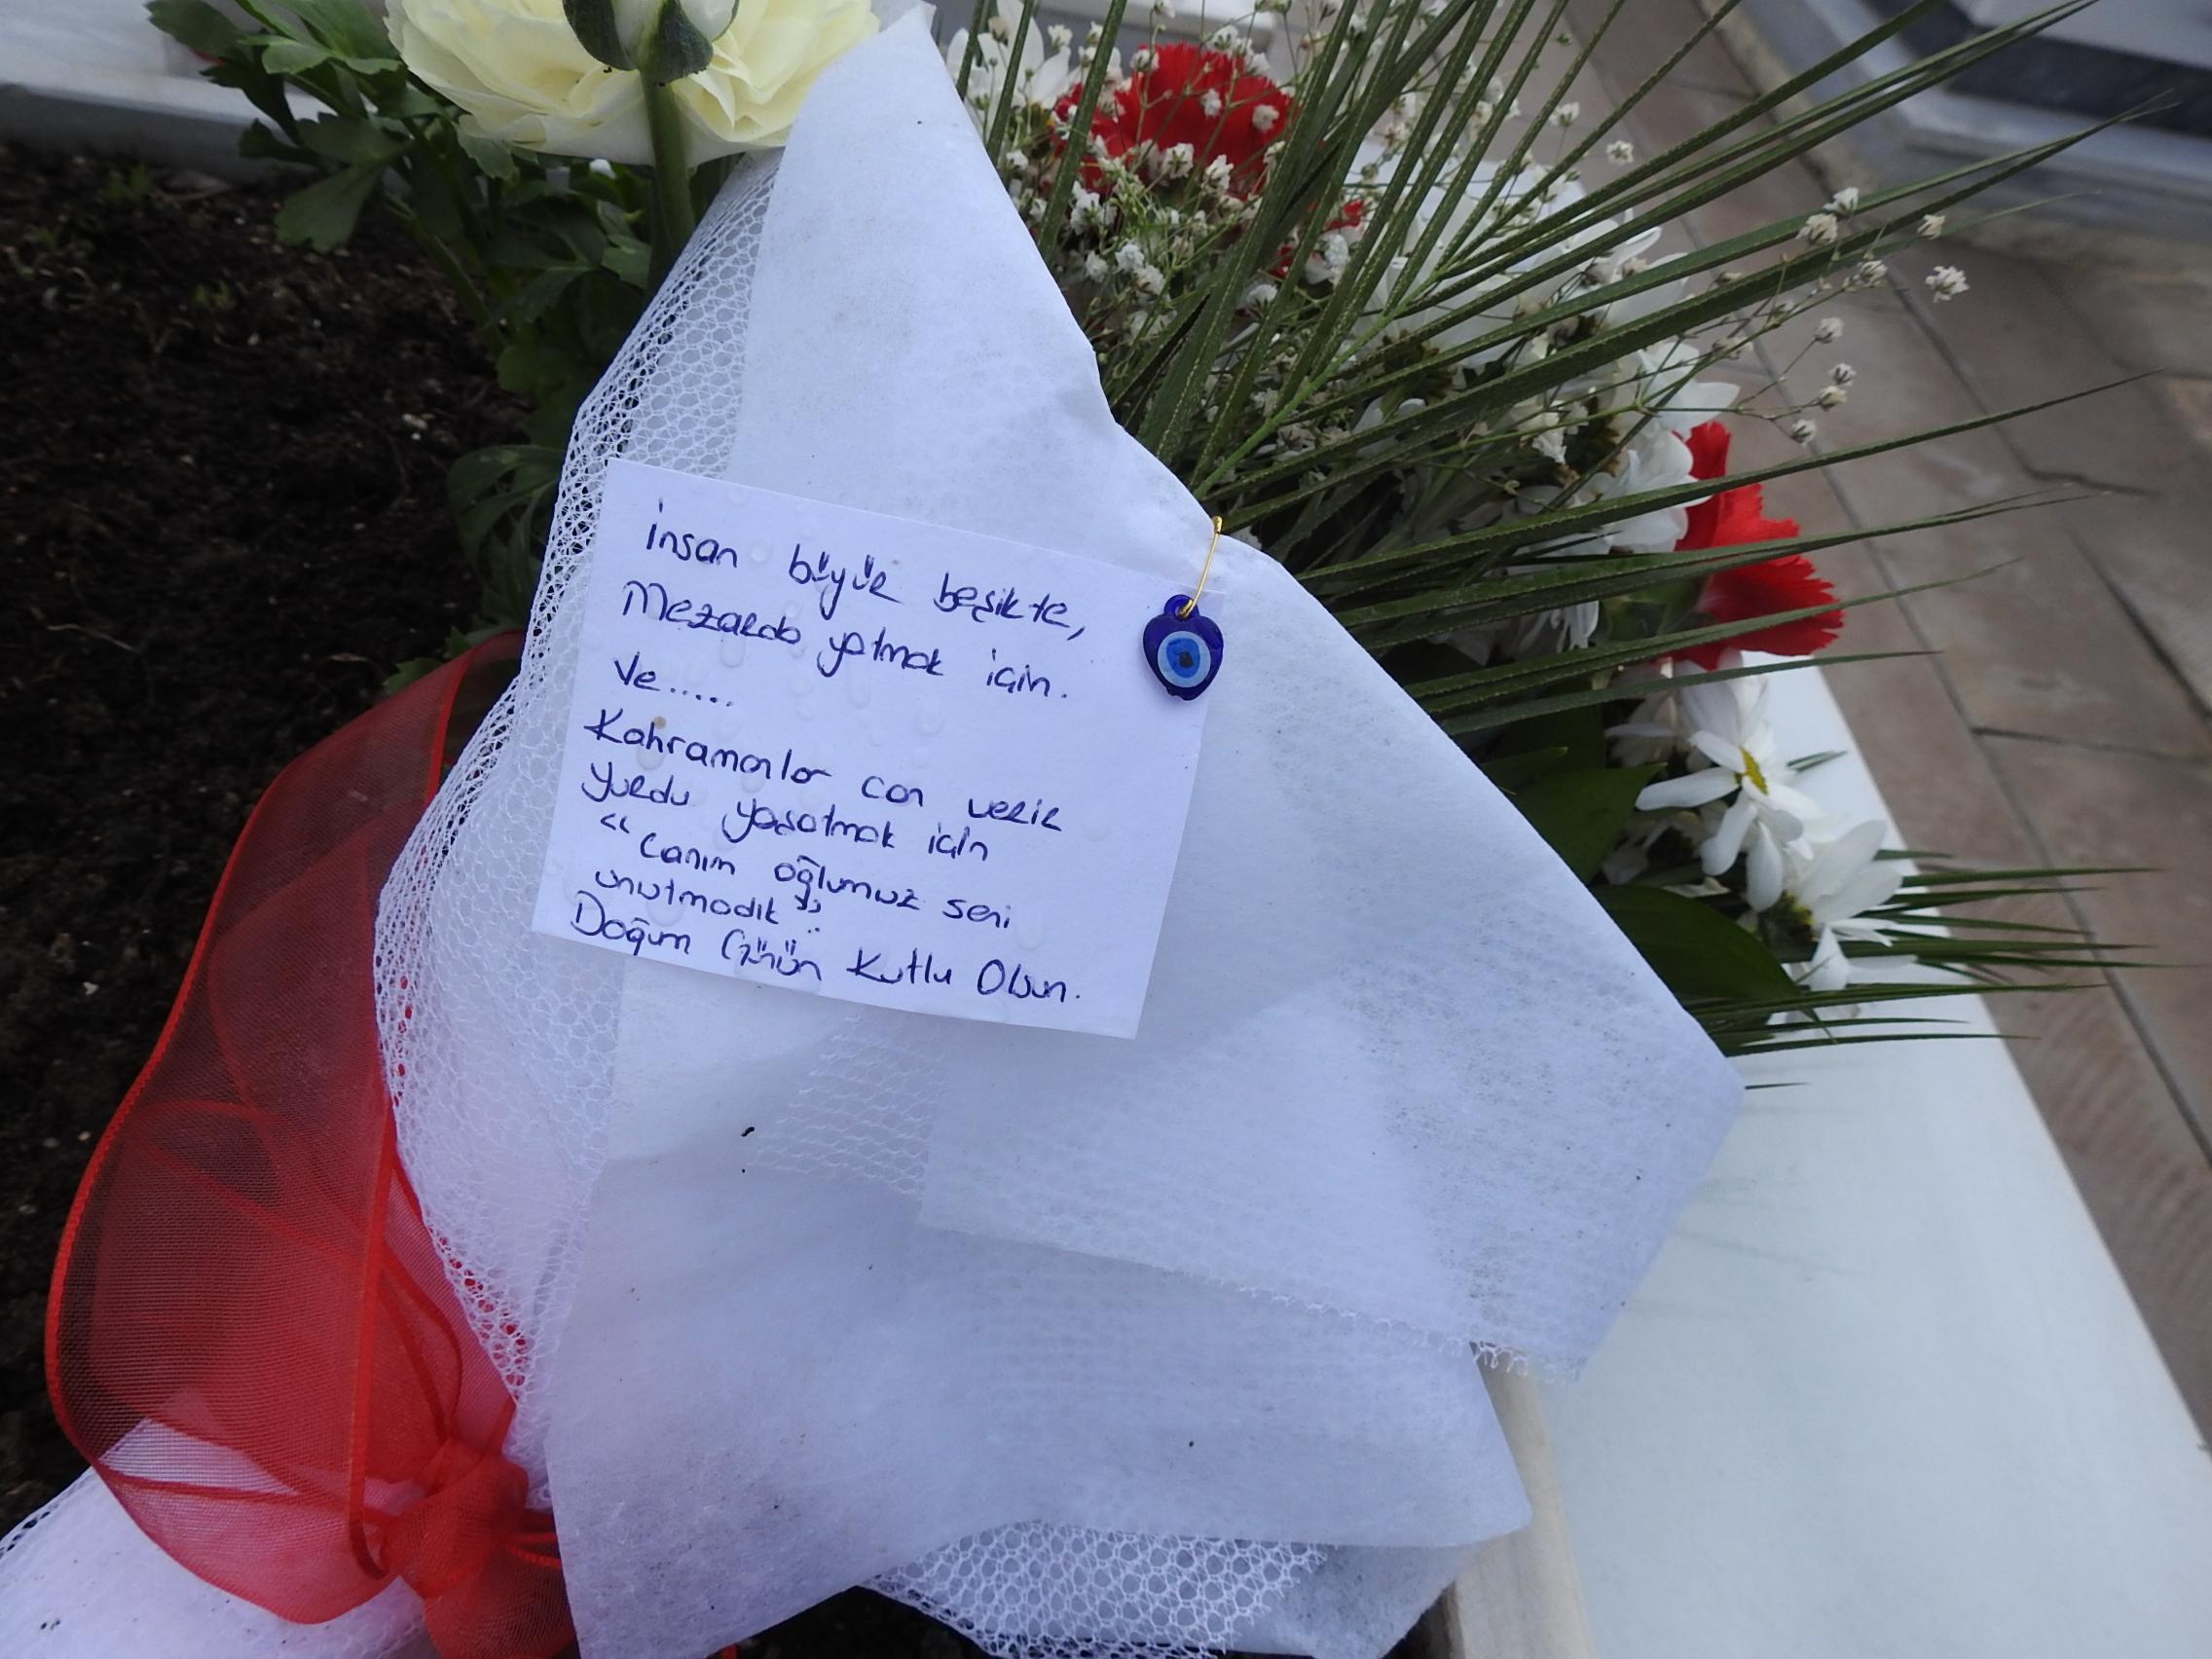 İnsan büyür beşikte,
Mezarda yatmak için.
Ve.....
Kahramanlar can verir
yurdu yaşatmak için
“Canım oğlumuz seni
unutmadık”
Doğum Günün Kutlu Olsun.